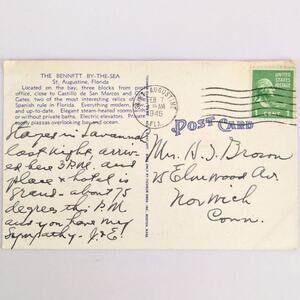 THE BENNETT BY-THE-SEA
St. Augustine, Florida
Located on the bay, three blocks from post
office, close to Castillo de San Marcos and
Gates, two of the most interesting relics of
Spanish rule in Florida. Everything modern
and up-to-date. Elegant steam-heated rooms
or without private baths. Electric elevators.
many piazzas overlooking bay and ocean.
POST CARD
FEB 7
AM
1946
FLA.
1 CENT 1
Stayed in Savannah
last night, arriv-
ed here 3 P.M. and
place & hotel is
grand - about 75
degrees this P.M.
and you have my
sympathy - J. & E.
Mrs. H. J. Brown
15 Elmwood Av.
Norwich
Conn.